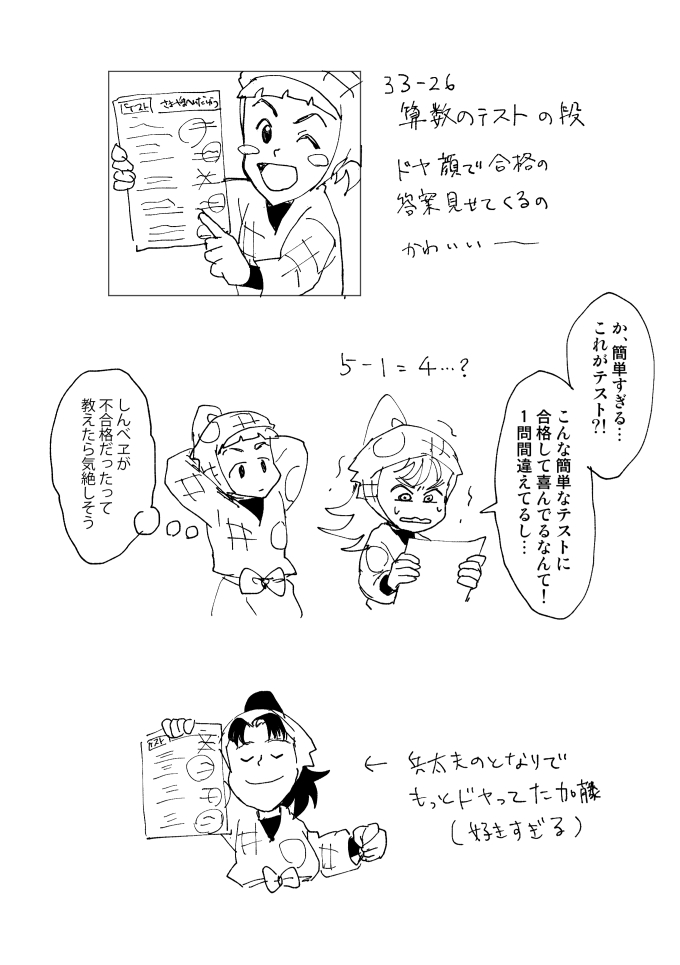 33-26
算数のテストの段
ドヤ顔で合格の
答案見せてくるの
かわいいー
テスト
か、簡単すぎる…
これがテスト?!
こんな簡単なテストに
合格して喜んでるなんて！
１問間違えてるし…
5-1=4…?
しんべヱが
不合格だったって
教えたら気絶しそう
テスト
← 兵太夫のとなりで
もっとドヤってた加藤
(好きすぎる)